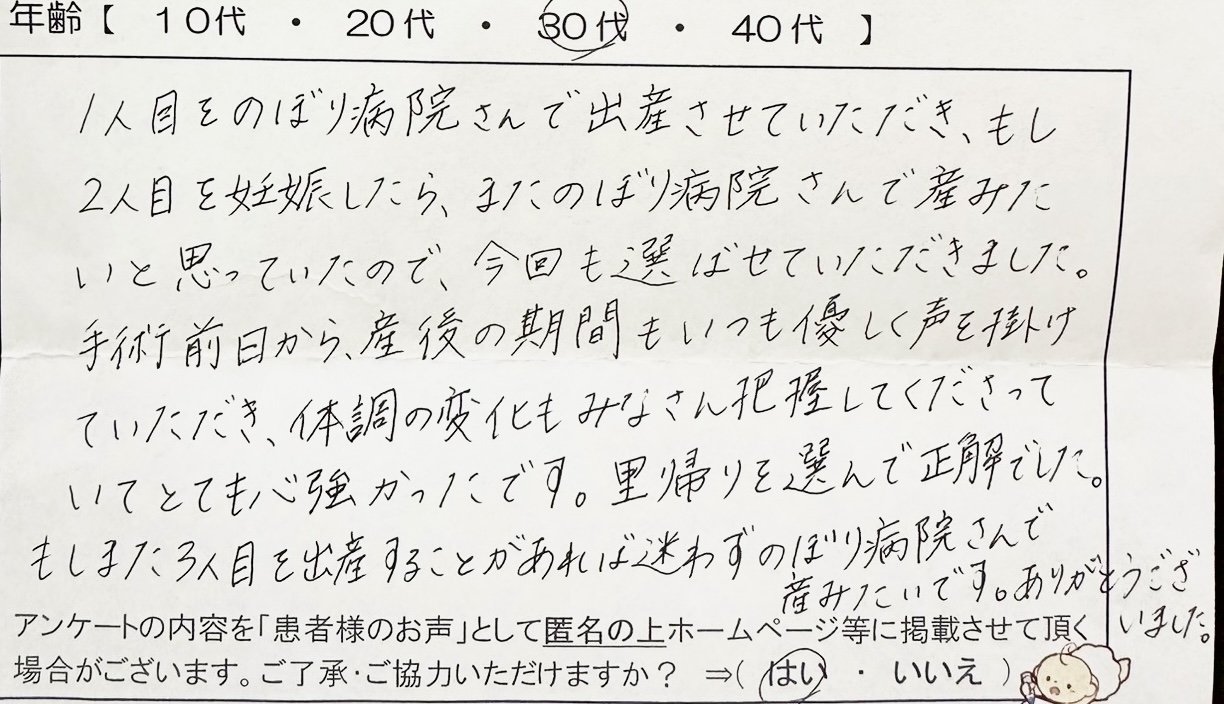 年齢【 10代 ・ 20代 ・ 30代 ・ 40代 】
1人目をのぼり病院さんで出産させていただき、もし
2人目を妊娠したら、またのぼり病院さんで産みた
いと思っていたので、今回も選ばせていただきました。
手術前日から、産後の期間もいつも優しく声を掛け
ていただき、体調の変化もみなさん把握してくださって
いてとても心強かったです。里帰りを選んで正解でした。
もしまた3人目を出産することがあれば迷わずのぼり病院さんで
産みたいです。ありがとうござ
いました。
アンケートの内容を「患者様のお声」として匿名の上ホームページ等に掲載させて頂く
場合がございます。ご了承・ご協力いただけますか？ ⇒( はい ・ いいえ )